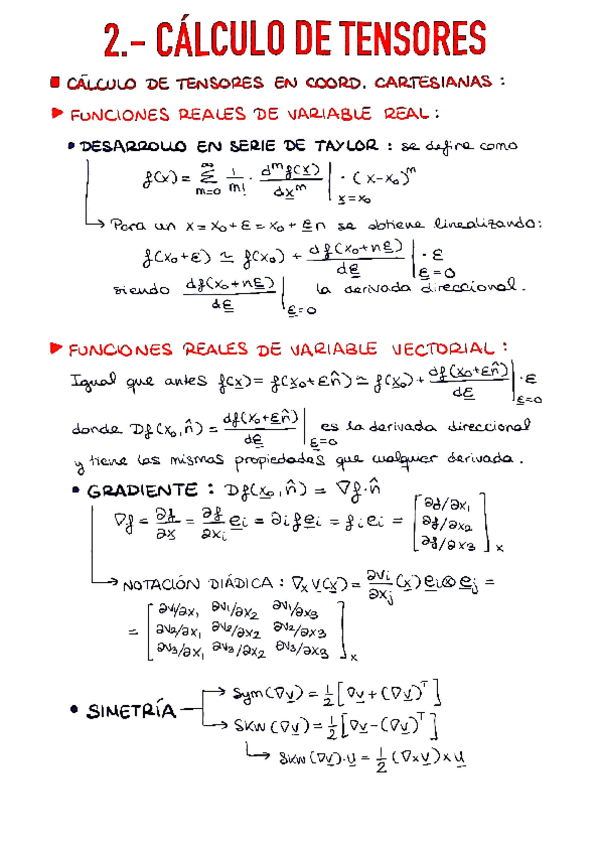 2.- CÁLCULO DE TENSORES
CÁLCULO DE TENSORES EN COORD. CARTESIANAS :
FUNCIONES REALES DE VARIABLE REAL :
• DESARROLLO EN SERIE DE TAYLOR : se define como
f(x) = ∑_{m=0}^{∞} 1/m! · d^m f(x)/dx^m |_{x=x₀} · (x-x₀)^m
Para un x = x₀ + ε = x₀ + εn se obtiene linealizando:
f(x₀+ε) ≃ f(x₀) + df(x₀+nε)/dε |_{ε=0} · ε
siendo df(x₀+nε)/dε |_{ε=0} la derivada direccional.
FUNCIONES REALES DE VARIABLE VECTORIAL :
Igual que antes f(x) = f(x₀+εn̂) ≃ f(x₀) + df(x₀+εn̂)/dε |_{ε=0} · ε
donde Df(x₀,n̂) = df(x₀+εn̂)/dε |_{ε=0} es la derivada direccional
y tiene las mismas propiedades que cualquier derivada.
• GRADIENTE : Df(x₀,n̂) = ∇f·n̂
∇f = ∂f/∂x = ∂f/∂xᵢ eᵢ = ∂ᵢf eᵢ = fᵢeᵢ = [∂f/∂x₁ ∂f/∂x₂ ∂f/∂x₃]_x
NOTACIÓN DIÁDICA : ∇ₓv(x) = ∂vᵢ/∂xⱼ (x) eᵢ⊗eⱼ =
= [∂v₁/∂x₁ ∂v₁/∂x₂ ∂v₁/∂x₃
∂v₂/∂x₁ ∂v₂/∂x₂ ∂v₂/∂x₃
∂v₃/∂x₁ ∂v₃/∂x₂ ∂v₃/∂x₃]_x
• SIMETRÍA
Sym(∇v) = 1/2 [∇v + (∇v)ᵀ]
Skw(∇v) = 1/2 [∇v - (∇v)ᵀ]
Skw(∇v)·u = 1/2 (∇×v)×u